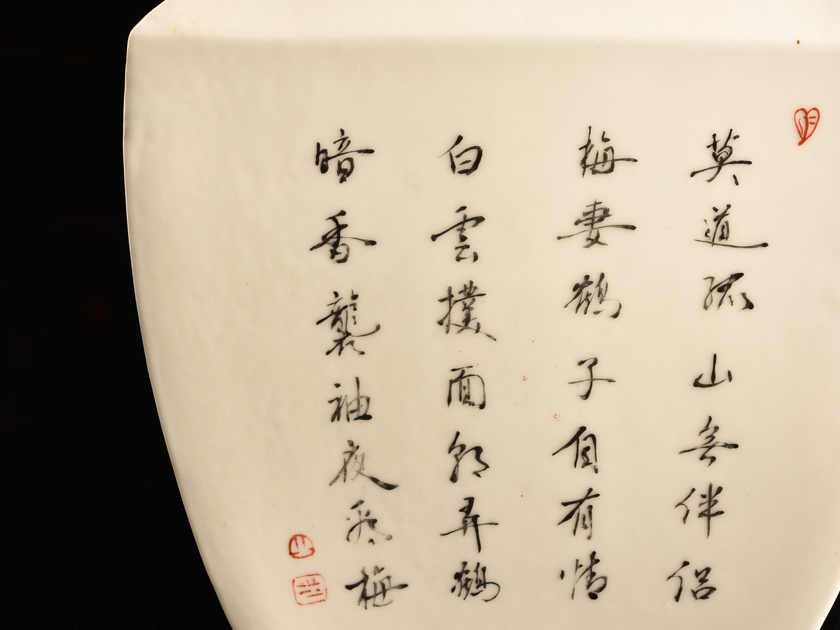 莫道孤山無伴侶
梅妻鶴子自有情
白雲撲面朝弄鶴
暗香襲袖夜梅